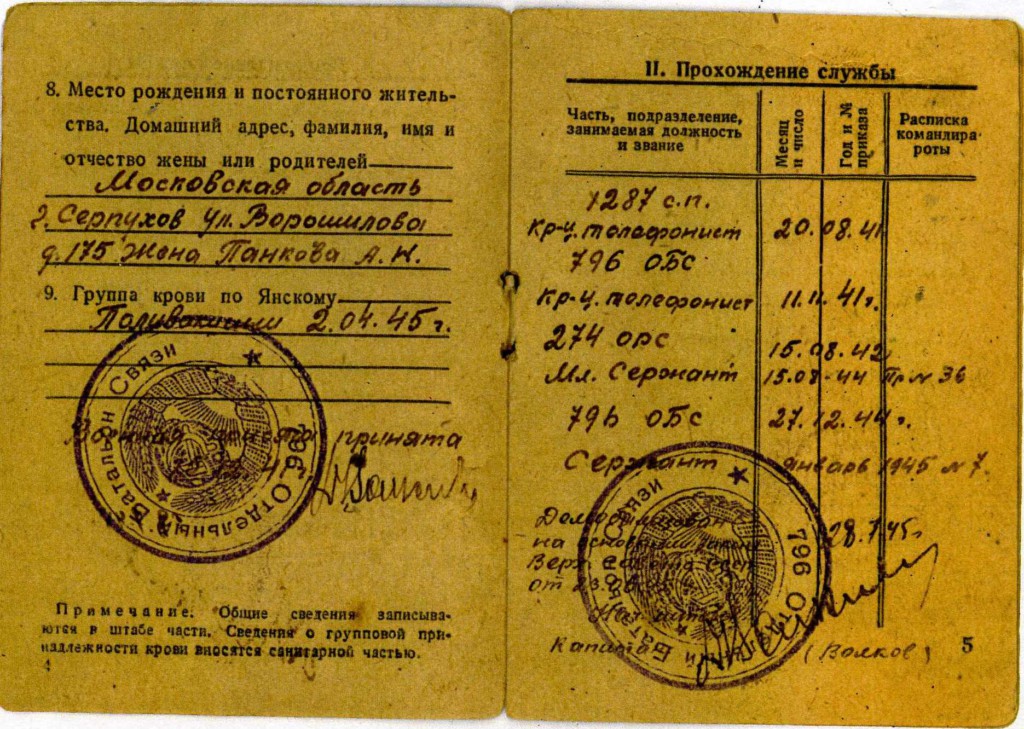 8. Место рождения и постоянного житель-
ства. Домашний адрес, фамилия, имя и
отчество жены или родителей
Московская область
г. Серпухов ул. Ворошилова
д. 175 Жена Панкова А. Н.
9. Группа крови по Янскому
2.04.45 г.
796 Отдельный Батальон Связи
Военная принята
Примечание. Общие сведения записыва-
ются в штабе части. Сведения о групповой при-
надлежности крови вносятся санитарной частью.
4
II. Прохождение службы
Часть, подразделение,
занимаемая должность
и звание
Месяц
и число
Год и №
приказа
Расписка
командира
роты
1287 с.п.
кр-ц. телефонист 20.08.41
796 ОБС
кр-ц. телефонист 11.11.41 г.
274 орс 15.08.42
Мл. Сержант 15.08-44 Пр N 36
796 ОБС 27.12.44 г.
Сержант январь 1945 N 7.
28.7.45г
на
Верх. Совета
от 23.06
796 Отдельный Батальон Связи
Капитан (Волков)
5